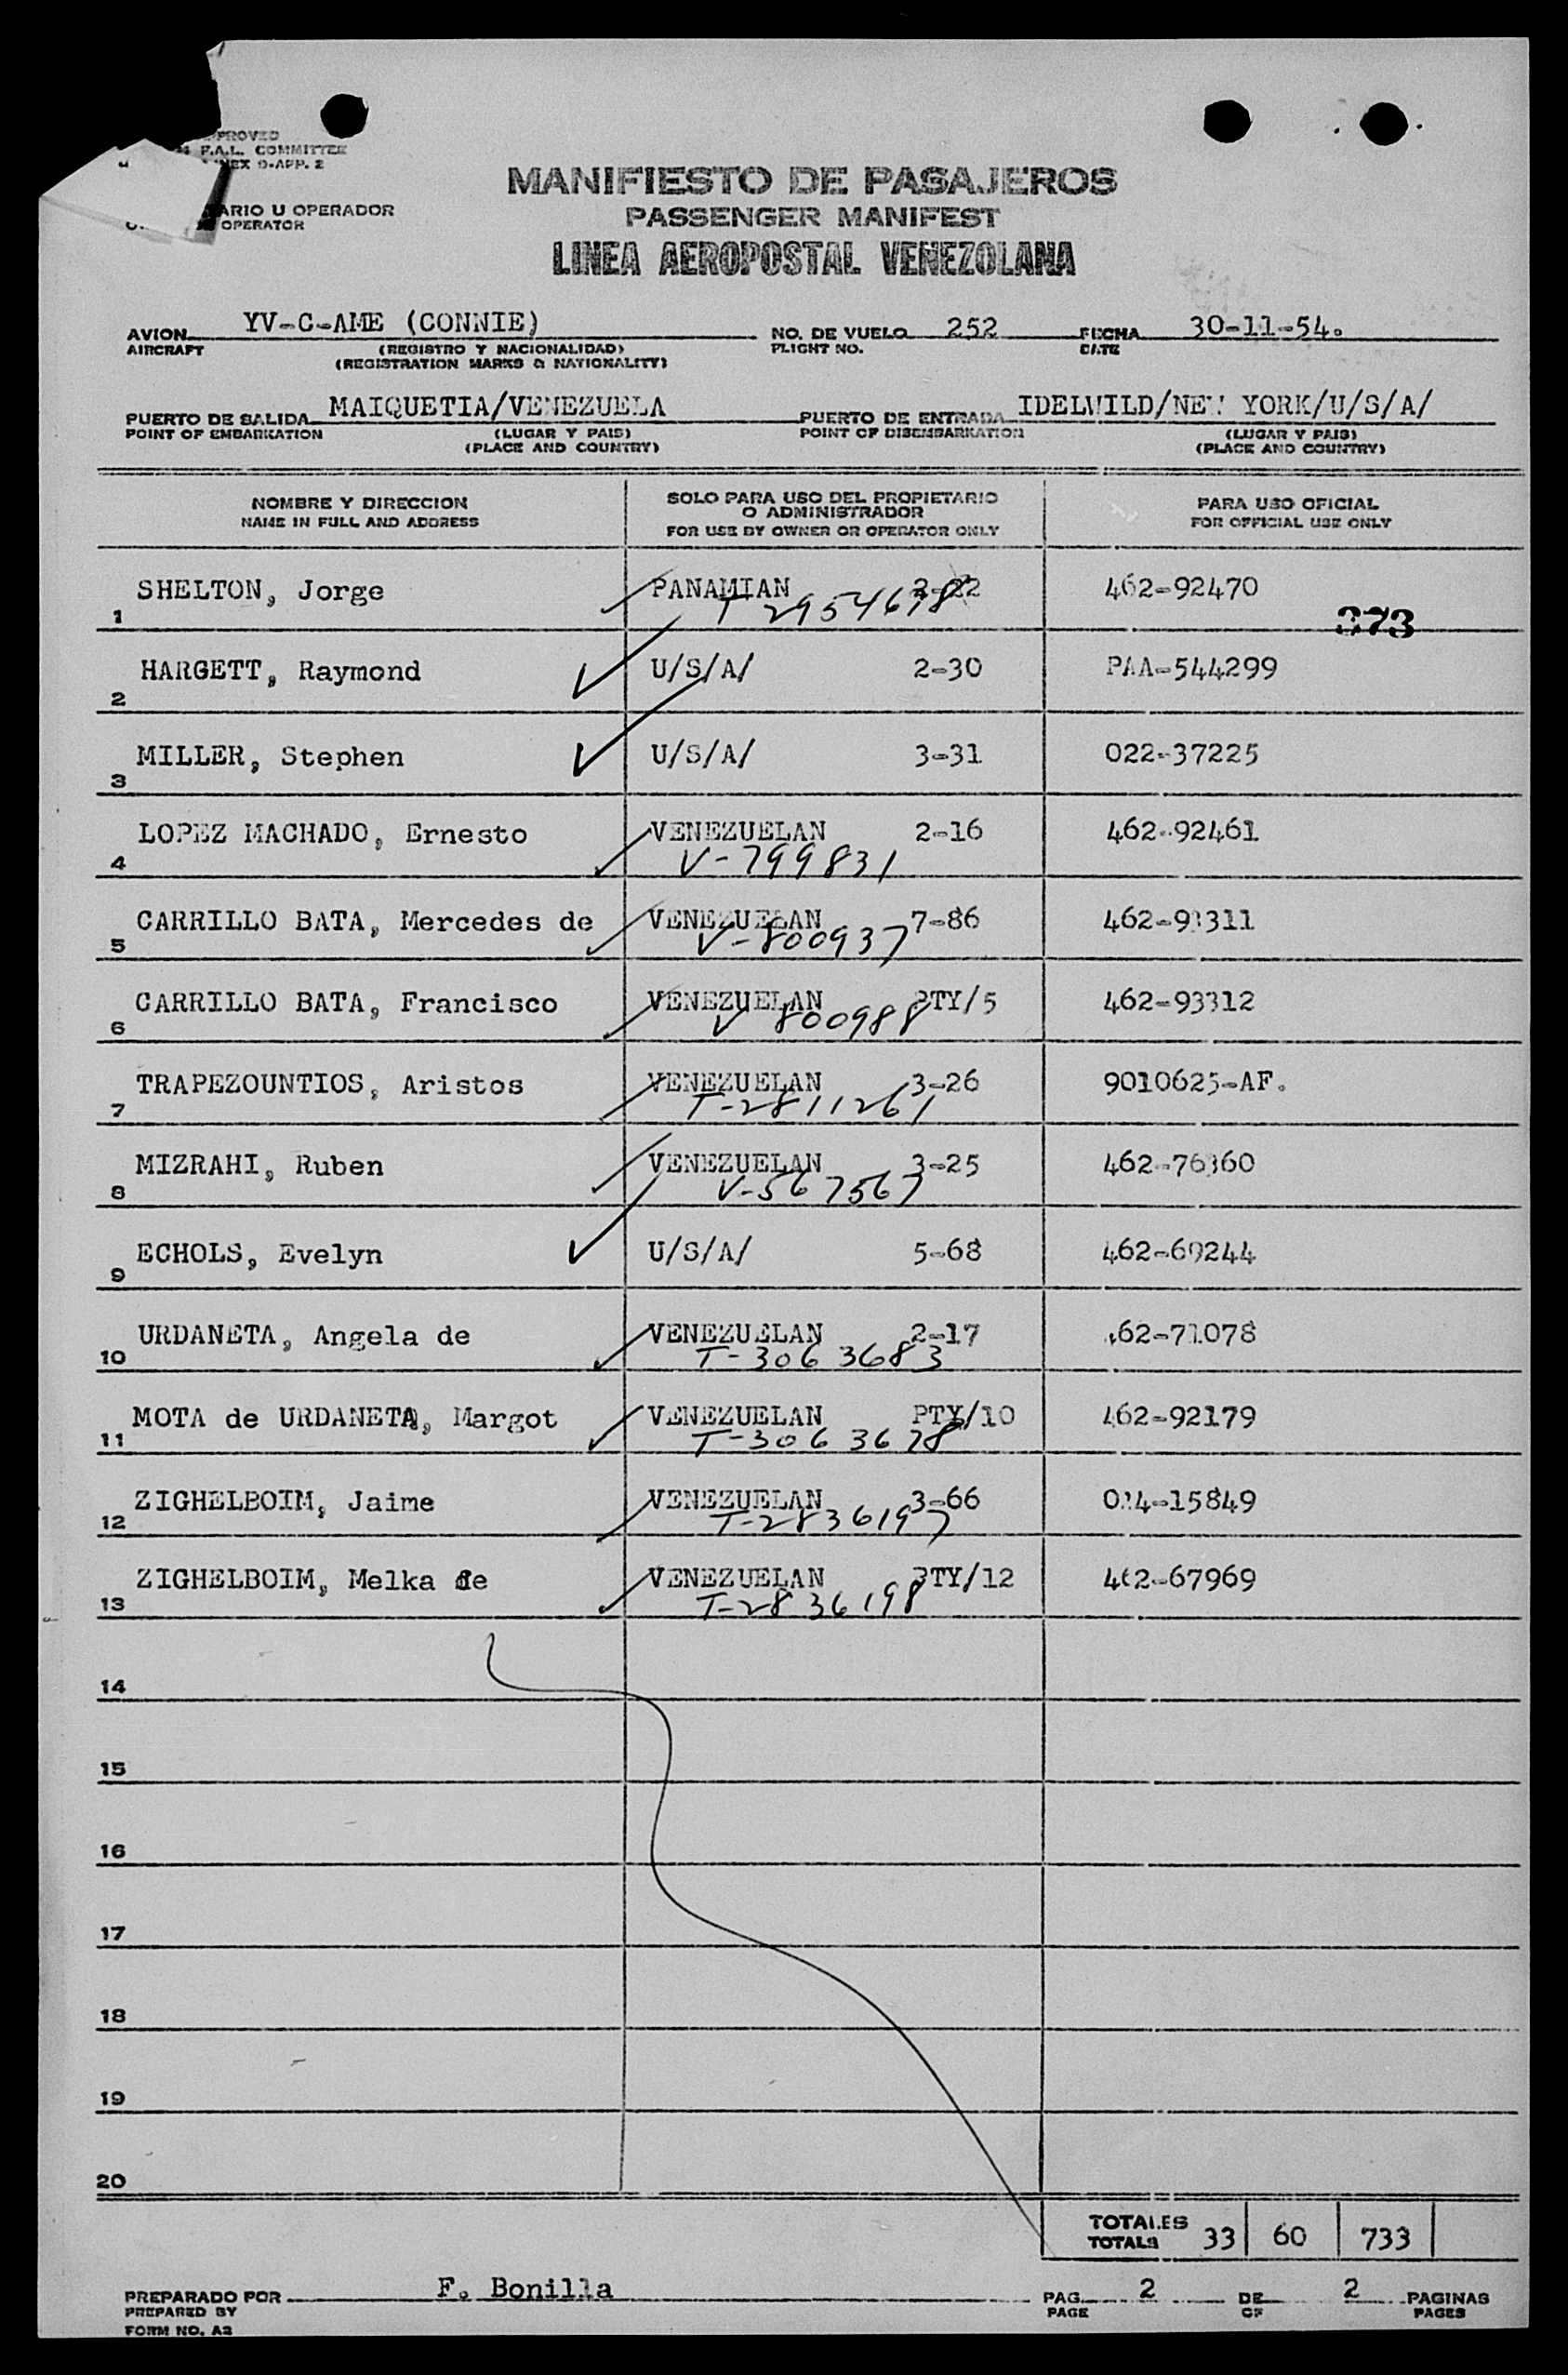 PPROVED
F.A.L. COMMITTEE
NEX 9-APP. 2
ARIO U OPERADOR
OPERATOR
MANIFIESTO DE PASAJEROS
PASSENGER MANIFEST
LINEA AEROPOSTAL VENEZOLANA
AVION YV-C-AME (CONNIE) NO. DE VUELO 252 FECHA 30-11-54.
AIRCRAFT (REGISTRO Y NACIONALIDAD) FLIGHT NO. DATE
(REGISTRATION MARKS & NATIONALITY)
PUERTO DE SALIDA MAIQUETIA/VENEZUELA PUERTO DE ENTRADA IDELWILD/NEW YORK/U/S/A/
POINT OF EMBARKATION (LUGAR Y PAIS) POINT OF DISEMBARKATION (LUGAR Y PAIS)
(PLACE AND COUNTRY) (PLACE AND COUNTRY)
NOMBRE Y DIRECCION SOLO PARA USO DEL PROPIETARIO PARA USO OFICIAL
O ADMINISTRADOR
NAME IN FULL AND ADDRESS FOR USE BY OWNER OR OPERATOR ONLY FOR OFFICIAL USE ONLY
SHELTON, Jorge PANAMIAN 2-22 462-92470
1 T 2954678 373
HARGETT, Raymond U/S/A/ 2-30 PAA-544299
2
MILLER, Stephen U/S/A/ 3-31 022-37225
3
LOPEZ MACHADO, Ernesto VENEZUELAN 2-16 462-92461
4 V-799831
CARRILLO BATA, Mercedes de VENEZUELAN 7-86 462-93311
5 V-800937
CARRILLO BATA, Francisco VENEZUELAN PTY/5 462-93312
6 V 800988
TRAPEZOUNTIOS, Aristos VENEZUELAN 3-26 9010625-AF.
7 T-2811261
MIZRAHI, Ruben VENEZUELAN 3-25 462-76360
8 V-567567
ECHOLS, Evelyn U/S/A/ 5-68 462-69244
9
URDANETA, Angela de VENEZUELAN 2-17 462-71078
10 T-3063683
MOTA de URDANETA, Margot VENEZUELAN PTY/10 462-92179
11 T-3063678
ZIGHELBOIM, Jaime VENEZUELAN 3-66 024-15849
12 T-2836197
ZIGHELBOIM, Melka de VENEZUELAN PTY/12 462-67969
13 T-2836198
14
15
16
17
18
19
20
TOTALES
TOTALS 33 60 733
PREPARADO POR F. Bonilla PAG. 2 DE 2 PAGINAS
PREPARED BY PAGE OF PAGES
FORM NO. A2